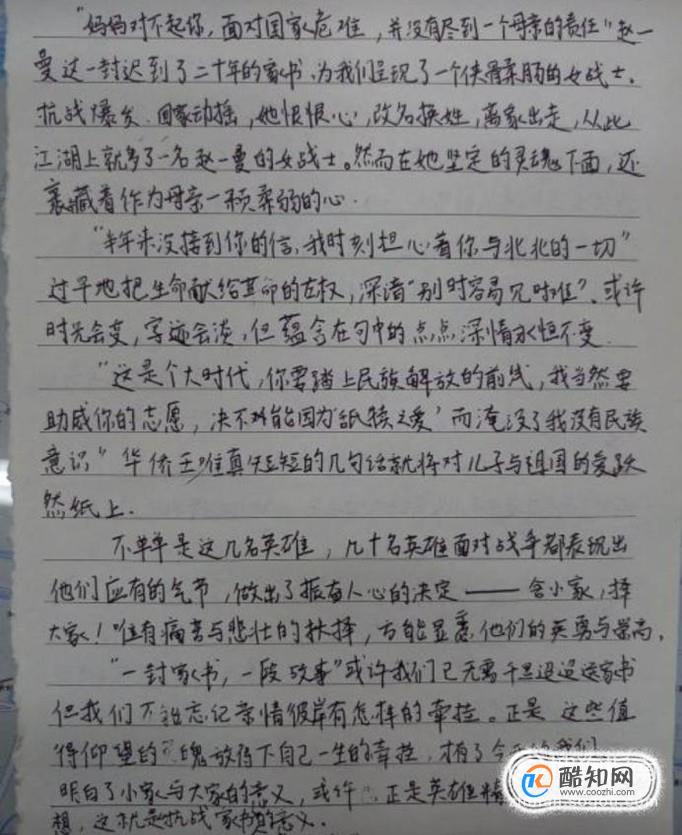 "妈妈对不起你，面对国家危难，并没有尽到一个母亲的责任"赵一
曼这一封迟到了二十年的家书，为我们呈现了一个侠骨柔肠的女战士。
抗战爆发，国家动摇，她恨恨心，改名换姓，离家出走，从此
江湖上就多了一名赵一曼的女战士。然而在她坚定的灵魂下面，还
裹藏着作为母亲一颗柔弱的心.
"半年来没接到你的信，我时刻担心着你与北北的一切"
过早地把生命献给革命的左权，深谙"别时容易见时难"。或许
时光会变，字迹会淡，但蕴含在句中的点点深情永恒不变.
"这是个大时代，你要踏上民族解放的前线，我当然要
助成你的志愿，决不能因为'舐犊之爱'而淹没了我没有民族
意识"华侨王唯真短短的几句话就将对儿子与祖国的爱跃
然纸上.
不单单是这几名英雄，几十名英雄面对战争都表现出
他们应有的气节，做出了振奋人心的决定——舍小家，择
大家！唯有痛苦与悲壮的抉择，方能显露他们的英勇与崇高。
"一封家书，一段故事"或许我们已无需千里迢迢送家书
但我们不能忘记亲情彼岸有怎样的牵挂。正是这些值
得仰望的 魂放得下自己一生的牵挂，才有了今 我们
明白了小家与大家的意义，或许 正是英雄
想，这就是抗战家书的意义.
酷知网
www.coozhi.com